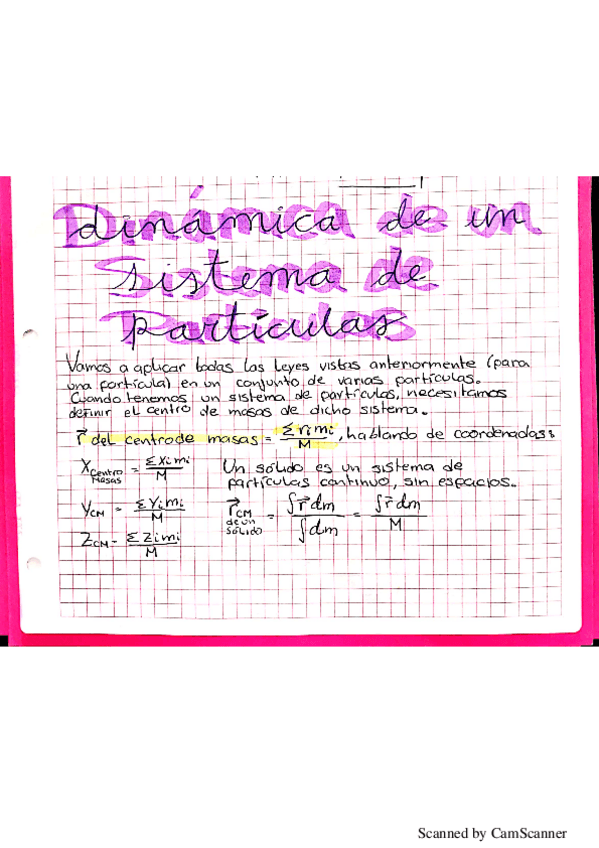 Dinámica de un
sistema de
Partículas
Vamos a aplicar todas las leyes vistas anteriormente (para
una partícula) en un conjunto de varias partículas.
Cuando tenemos un sistema de partículas, necesitamos
definir el centro de masas de dicho sistema.
r⃗ del centro de masas = Σ ri mi / M, hablando de coordenadas:
X Centro Masas = Σ Xi mi / M
Un sólido es un sistema de
partículas continuo, sin espacios.
YCM = Σ Yi mi / M
r⃗CM de un sólido = ∫ r⃗ dm / ∫ dm = ∫ r⃗ dm / M
ZCM = Σ Zi mi / M
Scanned by CamScanner